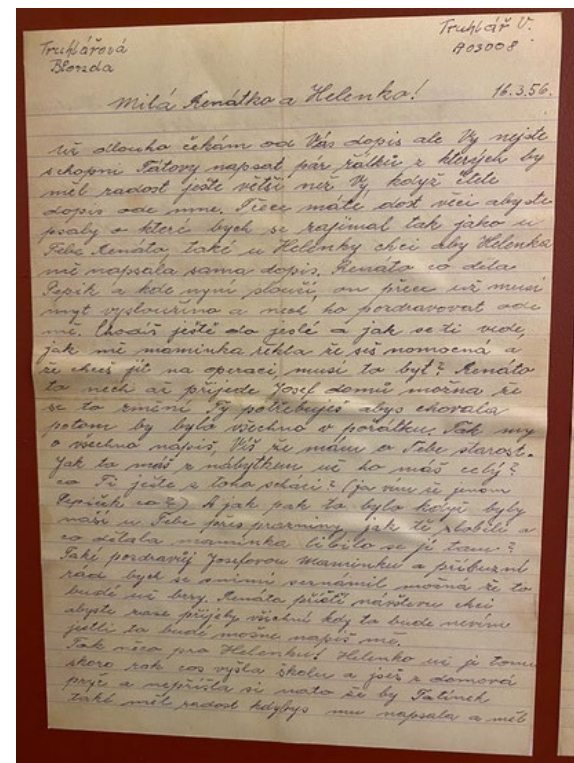 Truhlářová
Blonda
Truhlář V.
A03008
16.3.56.
Milá Renátko a Helenko!
Už dlouho čekám od Vás dopis ale Vy nejste
schopni Tátovy napsat pár řátků z kterých by
měl radost ještě větší než Vy když čtete
dopis ode mne. Přece máte dost věcí abyste
psaly o které bych se zajímal tak jako u
Tebe Renáto, také u Helenky chci aby Helenka
mě napsala sama dopis. Renáto co dělá
Pepík a kde nyní slouží, on přece už musí
mýt vyslouženo a nech ho pozdravovat ode
mě. Chodíš ještě do jeslé a jak se ti vede,
jak mě maminka řekla že jsi nemocná a
že chceš jít na operaci musí to být? Renáto
to nech až přijede Josef domů možná že
se to změní Ty potřebuješ abys chovala
potom by bylo všechno v pořádku, Tak my
o všechno napiš, Víš že mám o Tebe starost.
Jak to máš z nábytkem už ho máš celý?
co Ti ješte z toho schází? (ja vím že jenom
Pepíček co?) A jak pak to bylo když byly
naší u Tebe přes prazniny, jak tě zlobili a
co dělala maminka líbilo se jí tam?
Také pozdravůj Josefovou maminku a příbuzní
rád bych se snimi seznámil možná že to
bude už brzy. Renáta příští návštevu chci
abyste zase přijely všichni kdy to bude nevím
jestli to bude možné napiš mě.
Tak něco pro Helenku! Helenko už je tomu
skoro rok cos vyšla školu a jsi z domova
pryč a nepřišla si nato že by Tatínek
také měl radost kdybys mu napsala a měl